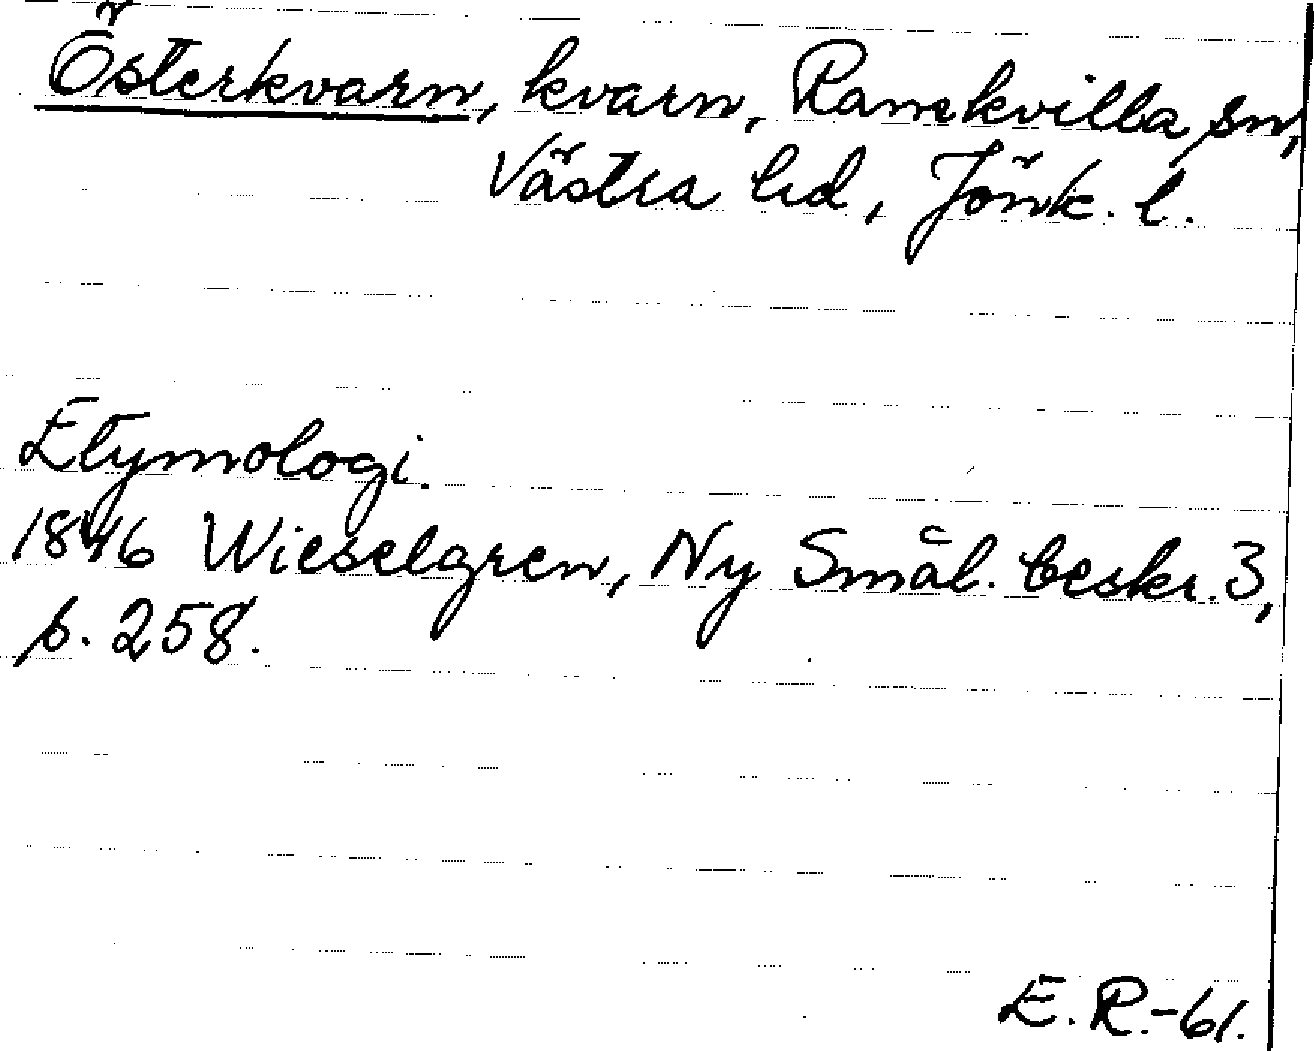 Österkvarn, kvarn, Ramkvilla sn,
Västra hd, Jönk. l.
Etymologi.
1846 Wieselgren, Ny Smål. beskr. 3,
s. 258.
E. R.-61.